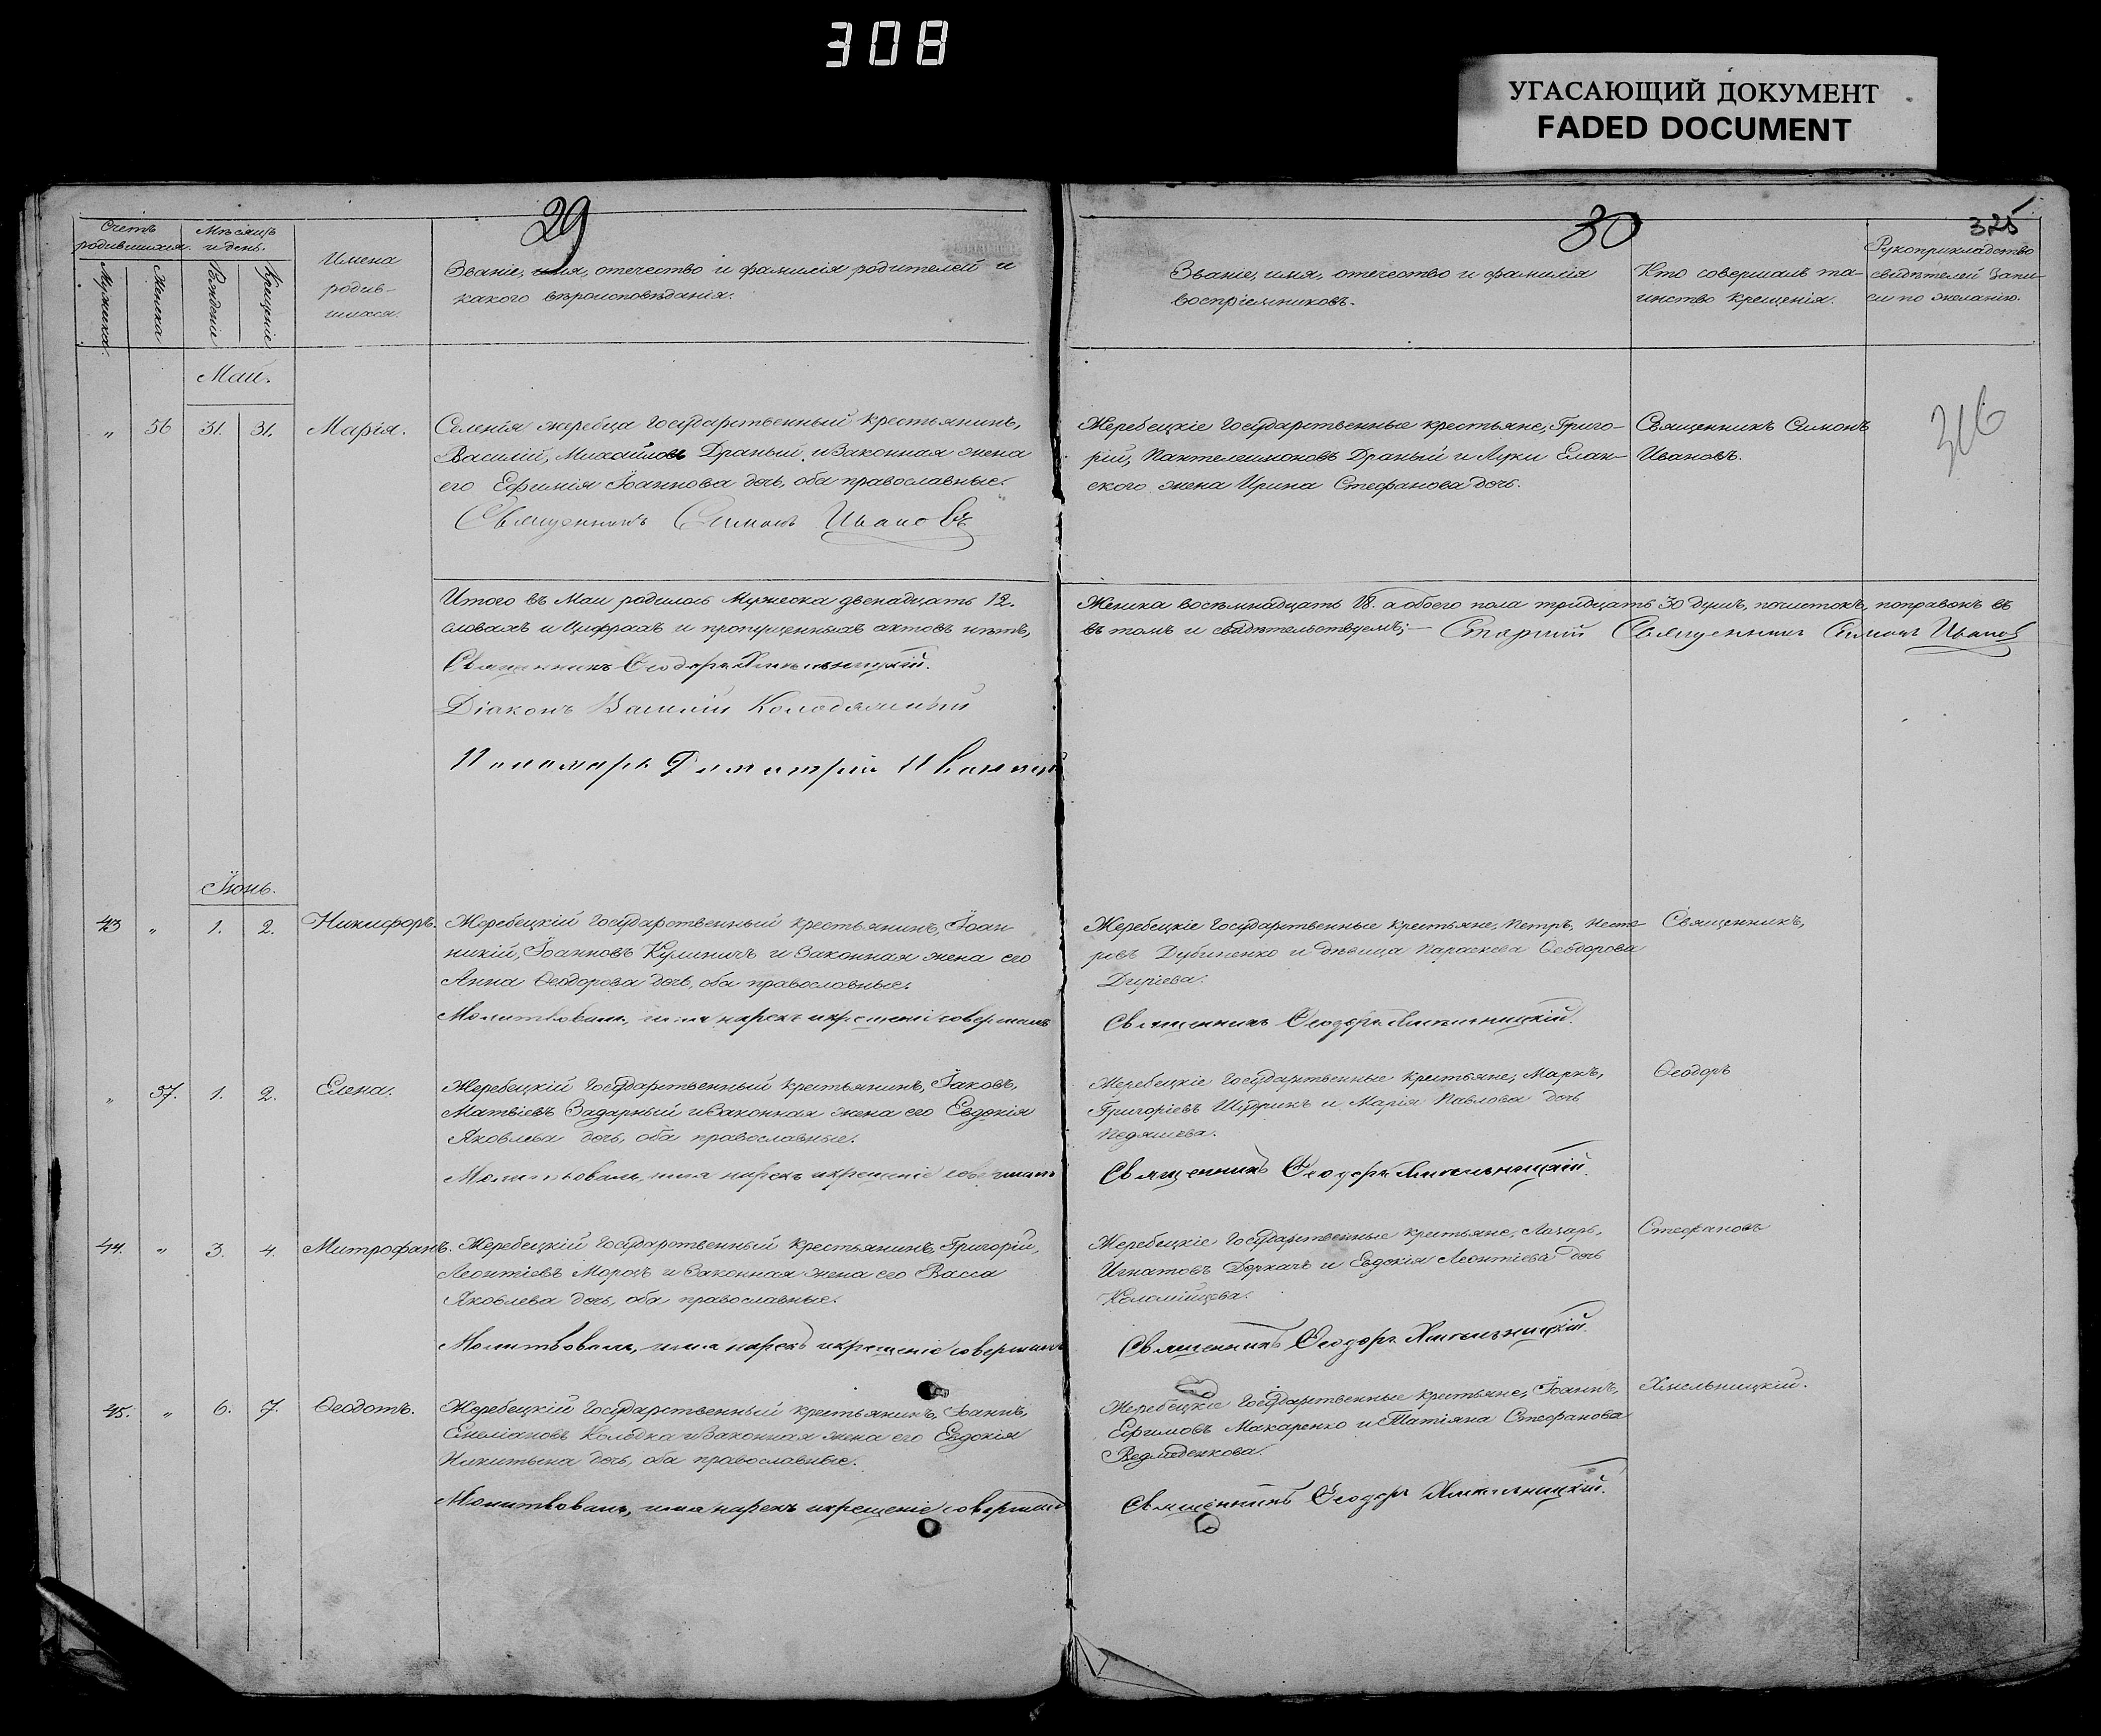 308
УГАСАЮЩИЙ ДОКУМЕНТ
FADED DOCUMENT
29
Счетъ родившихся.
Мѣсяцъ и день.
Мужеска.
Женска
Рожденіе
Крещеніе
Имена
родив-
шихся.
Званіе, имя, отечество и фамилія родителей и
какого вѣроисповѣданія.
30
325
Званіе, имя, отечество и фамилія
воспріемниковъ.
Кто совершалъ та-
инство крещенія.
Рукоприкладство
свидѣтелей запи-
си по желанію.
Маи.
" 56 31. 31. Марія.
Селенія жеребца государственный крестьянинъ,
Василій, Михайловъ Драный и законная жена
его Ефимія Іоаннова дочь, оба православные.
Священникъ Симонъ Ивановъ
Жеребецкіе государственные крестьяне, Григо-
рій, Пантелеимоновъ Драный и Луки Елан-
ского жена Ирина Стефанова дочь.
Священникъ Симонъ
Ивановъ.
316
Итого въ Маи родилось Мужеска двенадцать 12.
Женска восемнадцать 18. а обоего пола тридцать 30 душъ, почистокъ, поправокъ въ
словахъ и цифрахъ и пропущенныхъ актовъ нѣтъ,
въ томъ и свидѣтельствуемъ;— Старшій Священникъ Симонъ Ивановъ
Священникъ Ѳеодоръ Хмельницкій.
Діаконъ Василій Колодяжный
Пономарь Димитрій
Іюнь.
43 " 1. 2. Никифоръ.
Жеребецкій государственный крестьянинъ, Іоан
никій, Іоанновъ Кулиничъ и законная жена его
Анна Ѳеодорова дочь, оба православные.
Молитвовалъ, имя нарекъ и крещеніе совершалъ
Жеребецкіе государственные крестьяне, Петръ, Несте
ровъ Дубиненко и дѣвица Параскева Ѳеодорова
Священникъ Ѳеодоръ Хмельницкій.
Священникъ,
" 37. 1. 2. Елена.
Жеребецкій государственный крестьянинъ, Іаковъ,
Матвіевъ Задарный и законная жена его Евдокія
Яковлева дочь, оба православные.
Молитвовалъ, имя нарекъ и крещеніе совершалъ
Жеребецкіе государственные крестьяне, Маркъ,
Григоріевъ Щудрикъ и Марія Павлова дочь
Священникъ Ѳеодоръ Хмельницкій.
Ѳеодоръ
44. " 3. 4. Митрофанъ.
Жеребецкій государственный крестьянинъ, Григорій,
Леонтіевъ Морозъ и законная жена его Васса
Яковлева дочь, оба православные.
Молитвовалъ, имя нарекъ и крещеніе совершалъ
Жеребецкіе государственные крестьяне, Лазарь,
Игнатовъ Деркачъ и Евдокія Леонтіева дочь
Коломійцева.
Священникъ Ѳеодоръ Хмельницкій.
Стефановъ
45. " 6. 7. Ѳеодотъ.
Жеребецкій государственный крестьянинъ, Іоаннъ,
Емеліановъ Колодка и законная жена его Евдокія
Никитьина дочь, оба православные.
Молитвовалъ, имя нарекъ и крещеніе совершалъ
Жеребецкіе государственные крестьяне, Іоаннъ,
Ефимовъ Макаренко и Татіяна Стефанова
Ведмеденкова.
Священникъ Ѳеодоръ Хмельницкій.
Хмельницкій.